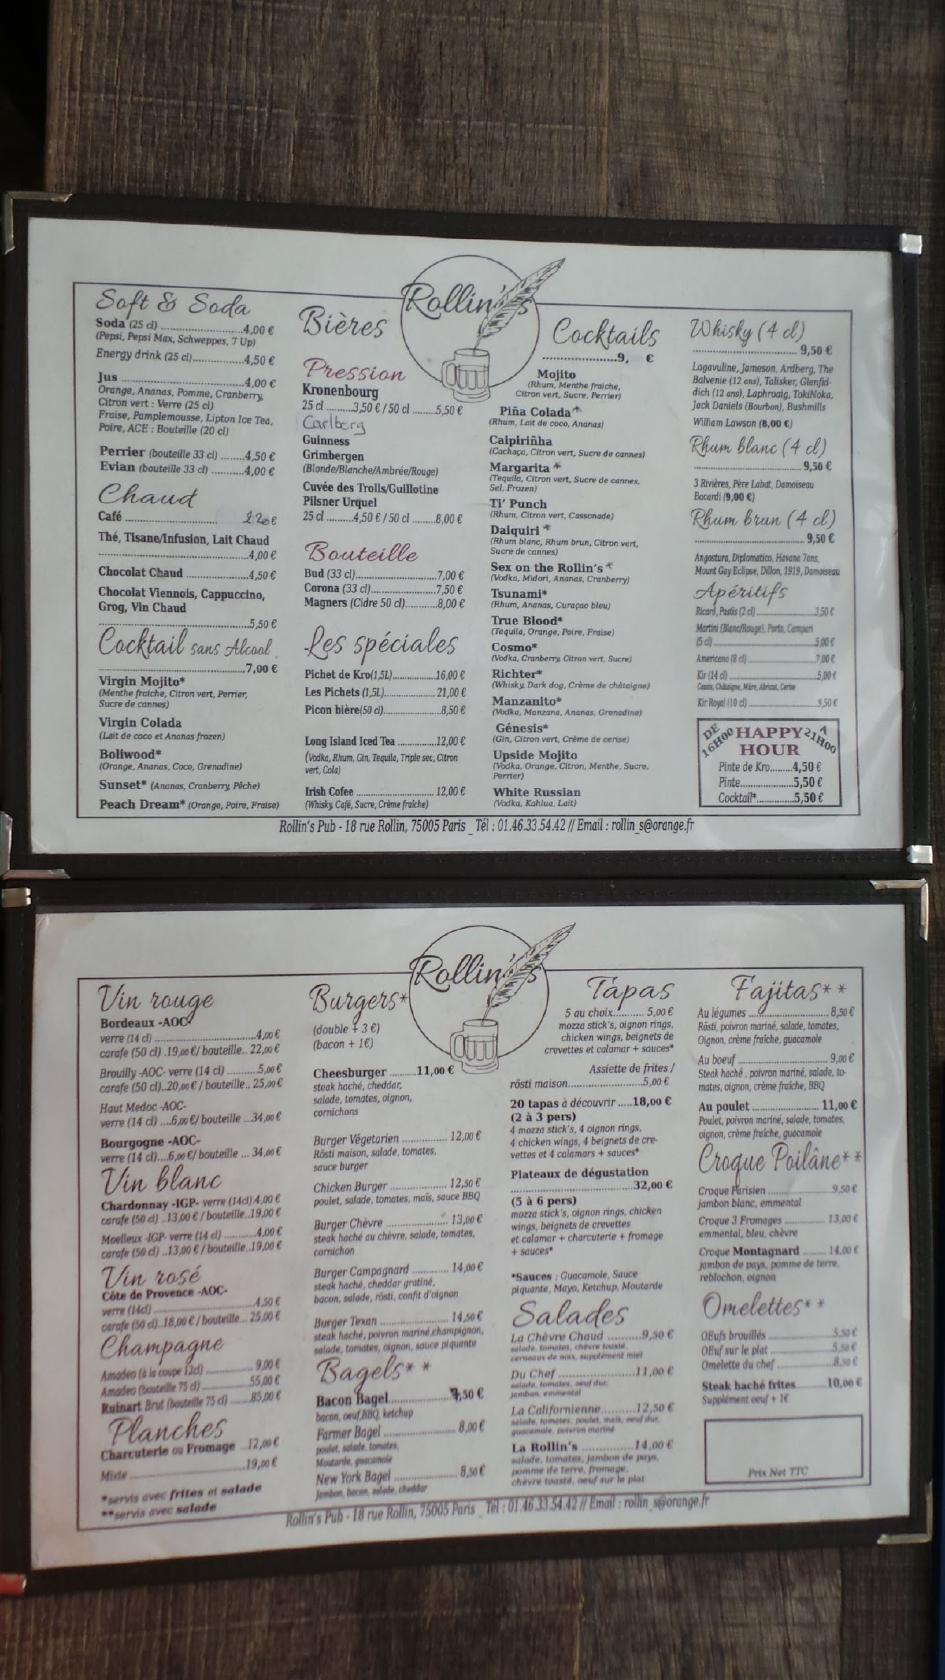 Rollin's
Soft & Soda
Soda (25 cl) ..........4,00 €
(Pepsi, Pepsi Max, Schweppes, 7 Up)
Energy drink (25 cl)..........4,50 €
Jus ..........4,00 €
Orange, Ananas, Pomme, Cranberry,
Citron vert : Verre (25 cl)
Fraise, Pamplemousse, Lipton Ice Tea,
Poire, ACE : Bouteille (20 cl)
Perrier (bouteille 33 cl) ..........4,50 €
Evian (bouteille 33 cl) ..........4,00 €
Chaud
Café .......... 2.20€
Thé, Tisane/Infusion, Lait Chaud
..........4,00 €
Chocolat Chaud ..........4,50 €
Chocolat Viennois, Cappuccino,
Grog, Vin Chaud
..........5,50 €
Cocktail sans Alcool
..........7,00 €
Virgin Mojito*
(Menthe fraiche, Citron vert, Perrier,
Sucre de cannes)
Virgin Colada
(Lait de coco et Ananas frozen)
Boliwood*
(Orange, Ananas, Coco, Grenadine)
Sunset* (Ananas, Cranberry, Pêche)
Peach Dream* (Orange, Poire, Fraise)
Bières
Pression
Kronenbourg
25 cl ..........3,50 € / 50 cl ..........5,50 €
Carlberg
Guinness
Grimbergen
(Blonde/Blanche/Ambrée/Rouge)
Cuvée des Trolls/Guillotine
Pilsner Urquel
25 cl ..........4,50 € / 50 cl ..........8,00 €
Bouteille
Bud (33 cl)..........7,00 €
Corona (33 cl)..........7,50 €
Magners (Cidre 50 cl)..........8,00 €
Les spéciales
Pichet de Kro(1,5L)..........16,00 €
Les Pichets (1,5L)..........21,00 €
Picon bière(50 cl)..........8,50 €
Long Island Iced Tea ..........12,00 €
(Vodka, Rhum, Gin, Tequila, Triple sec, Citron
vert, Cola)
Irish Cofee ..........12,00 €
(Whisky, Café, Sucre, Crème fraiche)
Cocktails
..........9, €
Mojito
(Rhum, Menthe fraiche,
Citron vert, Sucre, Perrier)
Piña Colada*
(Rhum, Lait de coco, Ananas)
Caipiriñha
(Cachaça, Citron vert, Sucre de cannes)
Margarita *
(Tequila, Citron vert, Sucre de cannes,
Sel, Frozen)
Ti' Punch
(Rhum, Citron vert, Cassonade)
Daiquiri *
(Rhum blanc, Rhum brun, Citron vert,
Sucre de cannes)
Sex on the Rollin's *
(Vodka, Midori, Ananas, Cranberry)
Tsunami*
(Rhum, Ananas, Curaçao bleu)
True Blood*
(Tequila, Orange, Poire, Fraise)
Cosmo*
(Vodka, Cranberry, Citron vert, Sucre)
Richter*
(Whisky, Dark dog, Crème de châtaigne)
Manzanito*
(Vodka, Manzana, Ananas, Grenadine)
Génesis*
(Gin, Citron vert, Crème de cerise)
Upside Mojito
(Vodka, Orange, Citron, Menthe, Sucre,
Perrier)
White Russian
(Vodka, Kahlua, Lait)
Whisky (4 cl)
..........9,50 €
Lagavuline, Jameson, Ardberg, The
Balvenie (12 ans), Talisker, Glenfid-
dich (12 ans), Laphroaig, TokiNoka,
Jack Daniels (Bourbon), Bushmills
William Lawson (8,00 €)
Rhum blanc (4 cl)
..........9,50 €
3 Rivières, Père Labat, Damoiseau
Bacardi (9,00 €)
Rhum brun (4 cl)
..........9,50 €
Angostura, Diplomatico, Havana 7ans,
Mount Gay Eclipse, Dillon, 1919, Damoiseau
Apéritifs
Ricard, Pastis (2 cl) ..........3,50 €
Martini (Blanc/Rouge), Porto, Campari
(5 cl)..........5,00 €
Americano (8 cl) ..........7,00 €
Kir (14 cl) ..........5,00 €
Cassis, Châtaigne, Mûre, Abricot, Cerise
Kir Royal (10 cl) ..........9,50 €
DE 16H00 HAPPY HOUR A 21H00
Pinte de Kro........4,50 €
Pinte..........5,50 €
Cocktail*..........5,50 €
Rollin's Pub - 18 rue Rollin, 75005 Paris _ Tél : 01.46.33.54.42 // Email : rollin_s@orange.fr
Rollin's
Vin rouge
Bordeaux -AOC-
verre (14 cl) ..........4,00 €
carafe (50 cl) .19,00 €/ bouteille.. 22,00 €
Brouilly -AOC- verre (14 cl) ..........5,00 €
carafe (50 cl)..20,00 € / bouteille.. 25,00 €
Haut Medoc -AOC-
verre (14 cl) ....6,00 €/ bouteille ...34,00 €
Bourgogne -AOC-
verre (14 cl)....6,00 €/ bouteille ... 34,00 €
Vin blanc
Chardonnay -IGP- verre (14cl) 4,00 €
carafe (50 cl) ..13,00 € / bouteille..19,00 €
Moelleux -IGP- verre (14 cl) ..........4,00 €
carafe (50 cl) ..13,00 € / bouteille..19,00 €
Vin rosé
Côte de Provence -AOC-
verre (14cl) ..........4,50 €
carafe (50 cl)..18,00 € / bouteille.. 25,00 €
Champagne
Amadeo (à la coupe 12cl) ..........9,00 €
Amadeo (bouteille 75 cl) ..........55,00 €
Ruinart Brut (bouteille 75 cl) ..........85,00 €
Planches
Charcuterie ou Fromage ...12,00 €
Mixte ..........19,00 €
*servis avec frites et salade
**servis avec salade
Burgers*
(double + 3 €)
(bacon + 1€)
Cheesburger ..........11,00 €
steak haché, cheddar,
salade, tomates, oignon,
cornichons
Burger Végétarien ..........12,00 €
Rösti maison, salade, tomates,
sauce burger
Chicken Burger ..........12,50 €
poulet, salade, tomates, maïs, sauce BBQ
Burger Chèvre ..........13,00 €
steak haché au chèvre, salade, tomates,
cornichon
Burger Campagnard ..........14,00 €
steak haché, cheddar gratiné,
bacon, salade, rösti, confit d'oignon
Burger Texan ..........14,50 €
steak haché, poivron mariné,champignon,
salade, tomates, oignon, sauce piquante
Bagels**
Bacon Bagel..........7,50 €
bacon, oeuf,BBQ, ketchup
Farmer Bagel ..........8,00 €
poulet, salade, tomates,
Moutarde, guacamole
New York Bagel ..........8,50 €
Jambon, bacon, salade, cheddar
Tapas
5 au choix..........5,00 €
mozza stick's, oignon rings,
chicken wings, beignets de
crevettes et calamar + sauces*
Assiette de frites /
rösti maison..........5,00 €
20 tapas à découvrir ....18,00 €
(2 à 3 pers)
4 mozza stick's, 4 oignon rings,
4 chicken wings, 4 beignets de cre-
vettes et 4 calamars + sauces*
Plateaux de dégustation
..........32,00 €
(5 à 6 pers)
mozza stick's, oignon rings, chicken
wings, beignets de crevettes
et calamar + charcuterie + fromage
+ sauces*
*Sauces : Guacamole, Sauce
piquante, Mayo, Ketchup, Moutarde
Salades
La Chèvre Chaud ..........9,50 €
salade, tomates, chèvre toasté,
cerneaux de noix, supplément miel
Du Chef ..........11,00 €
salade, tomates, oeuf dur,
jambon, emmental
La Californienne..........12,50 €
salade, tomates, poulet, maïs, oeuf dur,
guacamole, poivron mariné
La Rollin's ..........14,00 €
salade, tomates, jambon de pays,
pomme de terre, fromage,
chèvre toasté, oeuf sur le plat
Fajitas**
Au légumes ..........8,50 €
Rösti, poivron mariné, salade, tomates,
Oignon, crème fraîche, guacamole
Au boeuf ..........9,00 €
Steak haché , poivron mariné, salade, to-
mates, oignon, crème fraîche, BBQ
Au poulet ..........11,00 €
Poulet, poivron mariné, salade, tomates,
oignon, crème fraîche, guacamole
Croque Poilâne**
Croque Parisien ..........9,50 €
jambon blanc, emmental
Croque 3 Fromages ..........13,00 €
emmental, bleu, chèvre
Croque Montagnard ..........14,00 €
jambon de pays, pomme de terre,
reblochon, oignon
Omelettes**
OEufs brouillés ..........5,50 €
OEuf sur le plat ..........5,50 €
Omelette du chef ..........8,50 €
Steak haché frites ..........10,00 €
Supplément oeuf + 1€
Prix Net TTC
Rollin's Pub - 18 rue Rollin, 75005 Paris _ Tél : 01.46.33.54.42 // Email : rollin_s@orange.fr